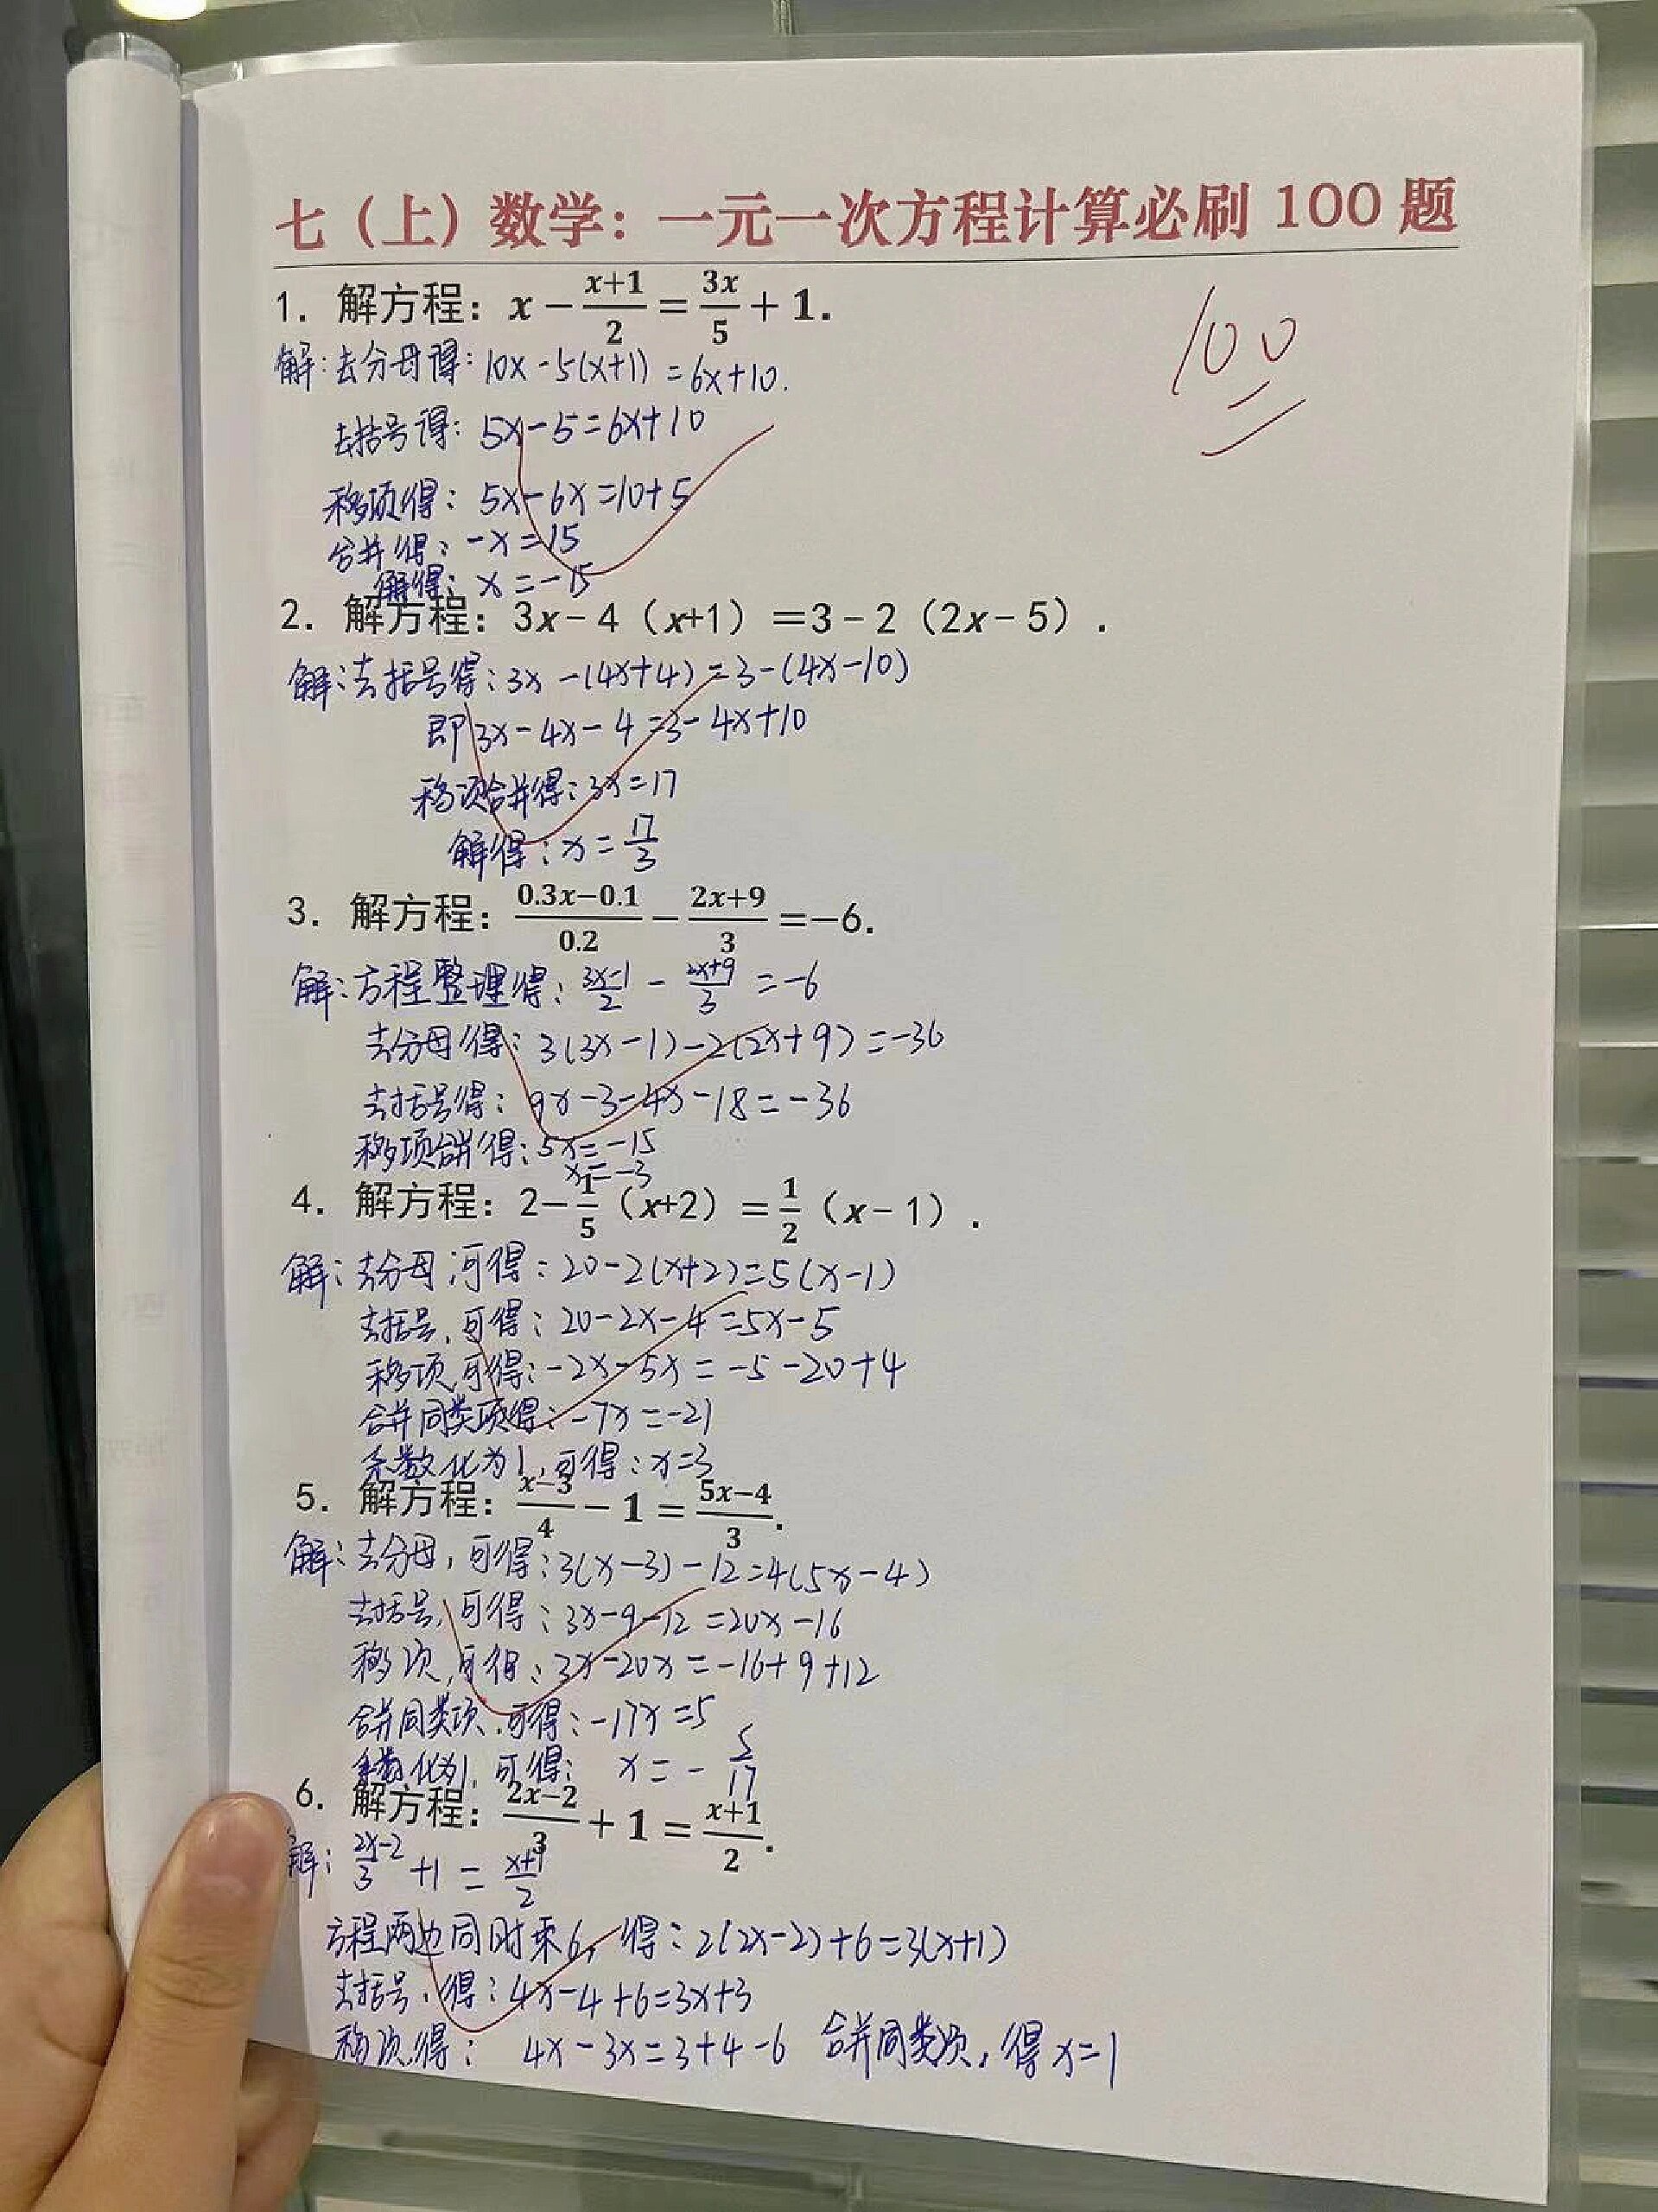 七（上）数学：一元一次方程计算必刷 100 题
1. 解方程：x − (x+1)/2 = 3x/5 + 1.
100
解：去分母得：10x - 5(x+1) = 6x+10.
去括号得：5x-5=6x+10
移项得：5x-6x=10+5
合并得：-x=15
解得：x=-15
2. 解方程：3x－4（x+1）=3－2（2x－5）.
解：去括号得：3x-(4x+4)=3-(4x-10)
即3x-4x-4=3-4x+10
移项合并得：3x=17
解得：x=17/3
3. 解方程：(0.3x−0.1)/0.2 − (2x+9)/3 =−6.
解：方程整理得：(3x-1)/2 - (2x+9)/3 = -6
去分母得：3(3x-1)-2(2x+9)=-36
去括号得：9x-3-4x-18=-36
移项合并得：5x=-15
x=-3
4. 解方程：2−1/5（x+2）=1/2（x－1）.
解：去分母,可得：20-2(x+2)=5(x-1)
去括号,可得：20-2x-4=5x-5
移项,可得：-2x-5x=-5-20+4
合并同类项得：-7x=-21
系数化为1,可得：x=3
5. 解方程：(x−3)/4 − 1 = (5x−4)/3.
解：去分母,可得：3(x-3)-12=4(5x-4)
去括号,可得：3x-9-12=20x-16
移项,可得：3x-20x=-16+9+12
合并同类项,可得：-17x=5
系数化为1,可得：x=-5/17
6. 解方程：(2x−2)/3 + 1 = (x+1)/2.
解：(2x-2)/3 +1 = (x+1)/2
方程两边同时乘6,得：2(2x-2)+6=3(x+1)
去括号,得：4x-4+6=3x+3
移项得：4x-3x=3+4-6 合并同类项,得x=1